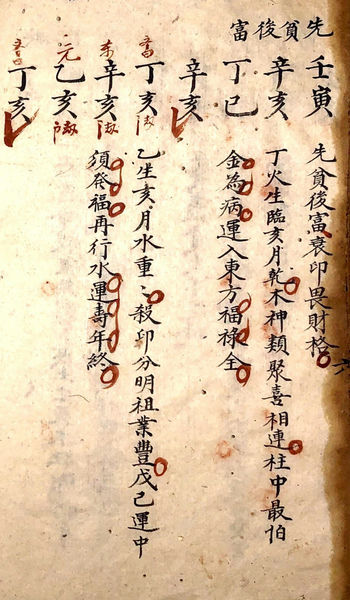 先貧後富
壬寅 先貧後富衰印畏財格
辛亥 丁火生臨亥月乾木神類聚喜相連柱中最怕
丁巳 金為病運入東方福祿全
辛亥
丁亥 乙生亥月水重〻殺印分明祖業豐戊己運中
辛亥 須發福再行水運壽年終
乙亥
丁亥